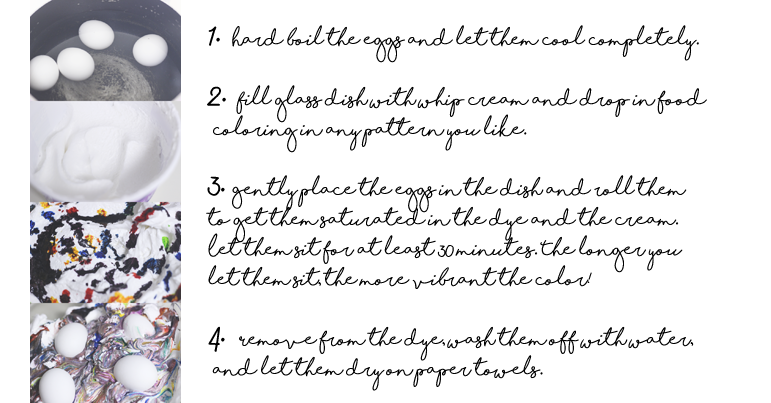 1. hard boil the eggs and let them cool completely.
2. fill glass dish with whip cream and drop in food
coloring in any pattern you like.
3. gently place the eggs in the dish and roll them
to get them saturated in the dye and the cream.
let them sit for at least 30 minutes. the longer you
let them sit, the more vibrant the color!
4. remove from the dye, wash them off with water,
and let them dry on paper towels.